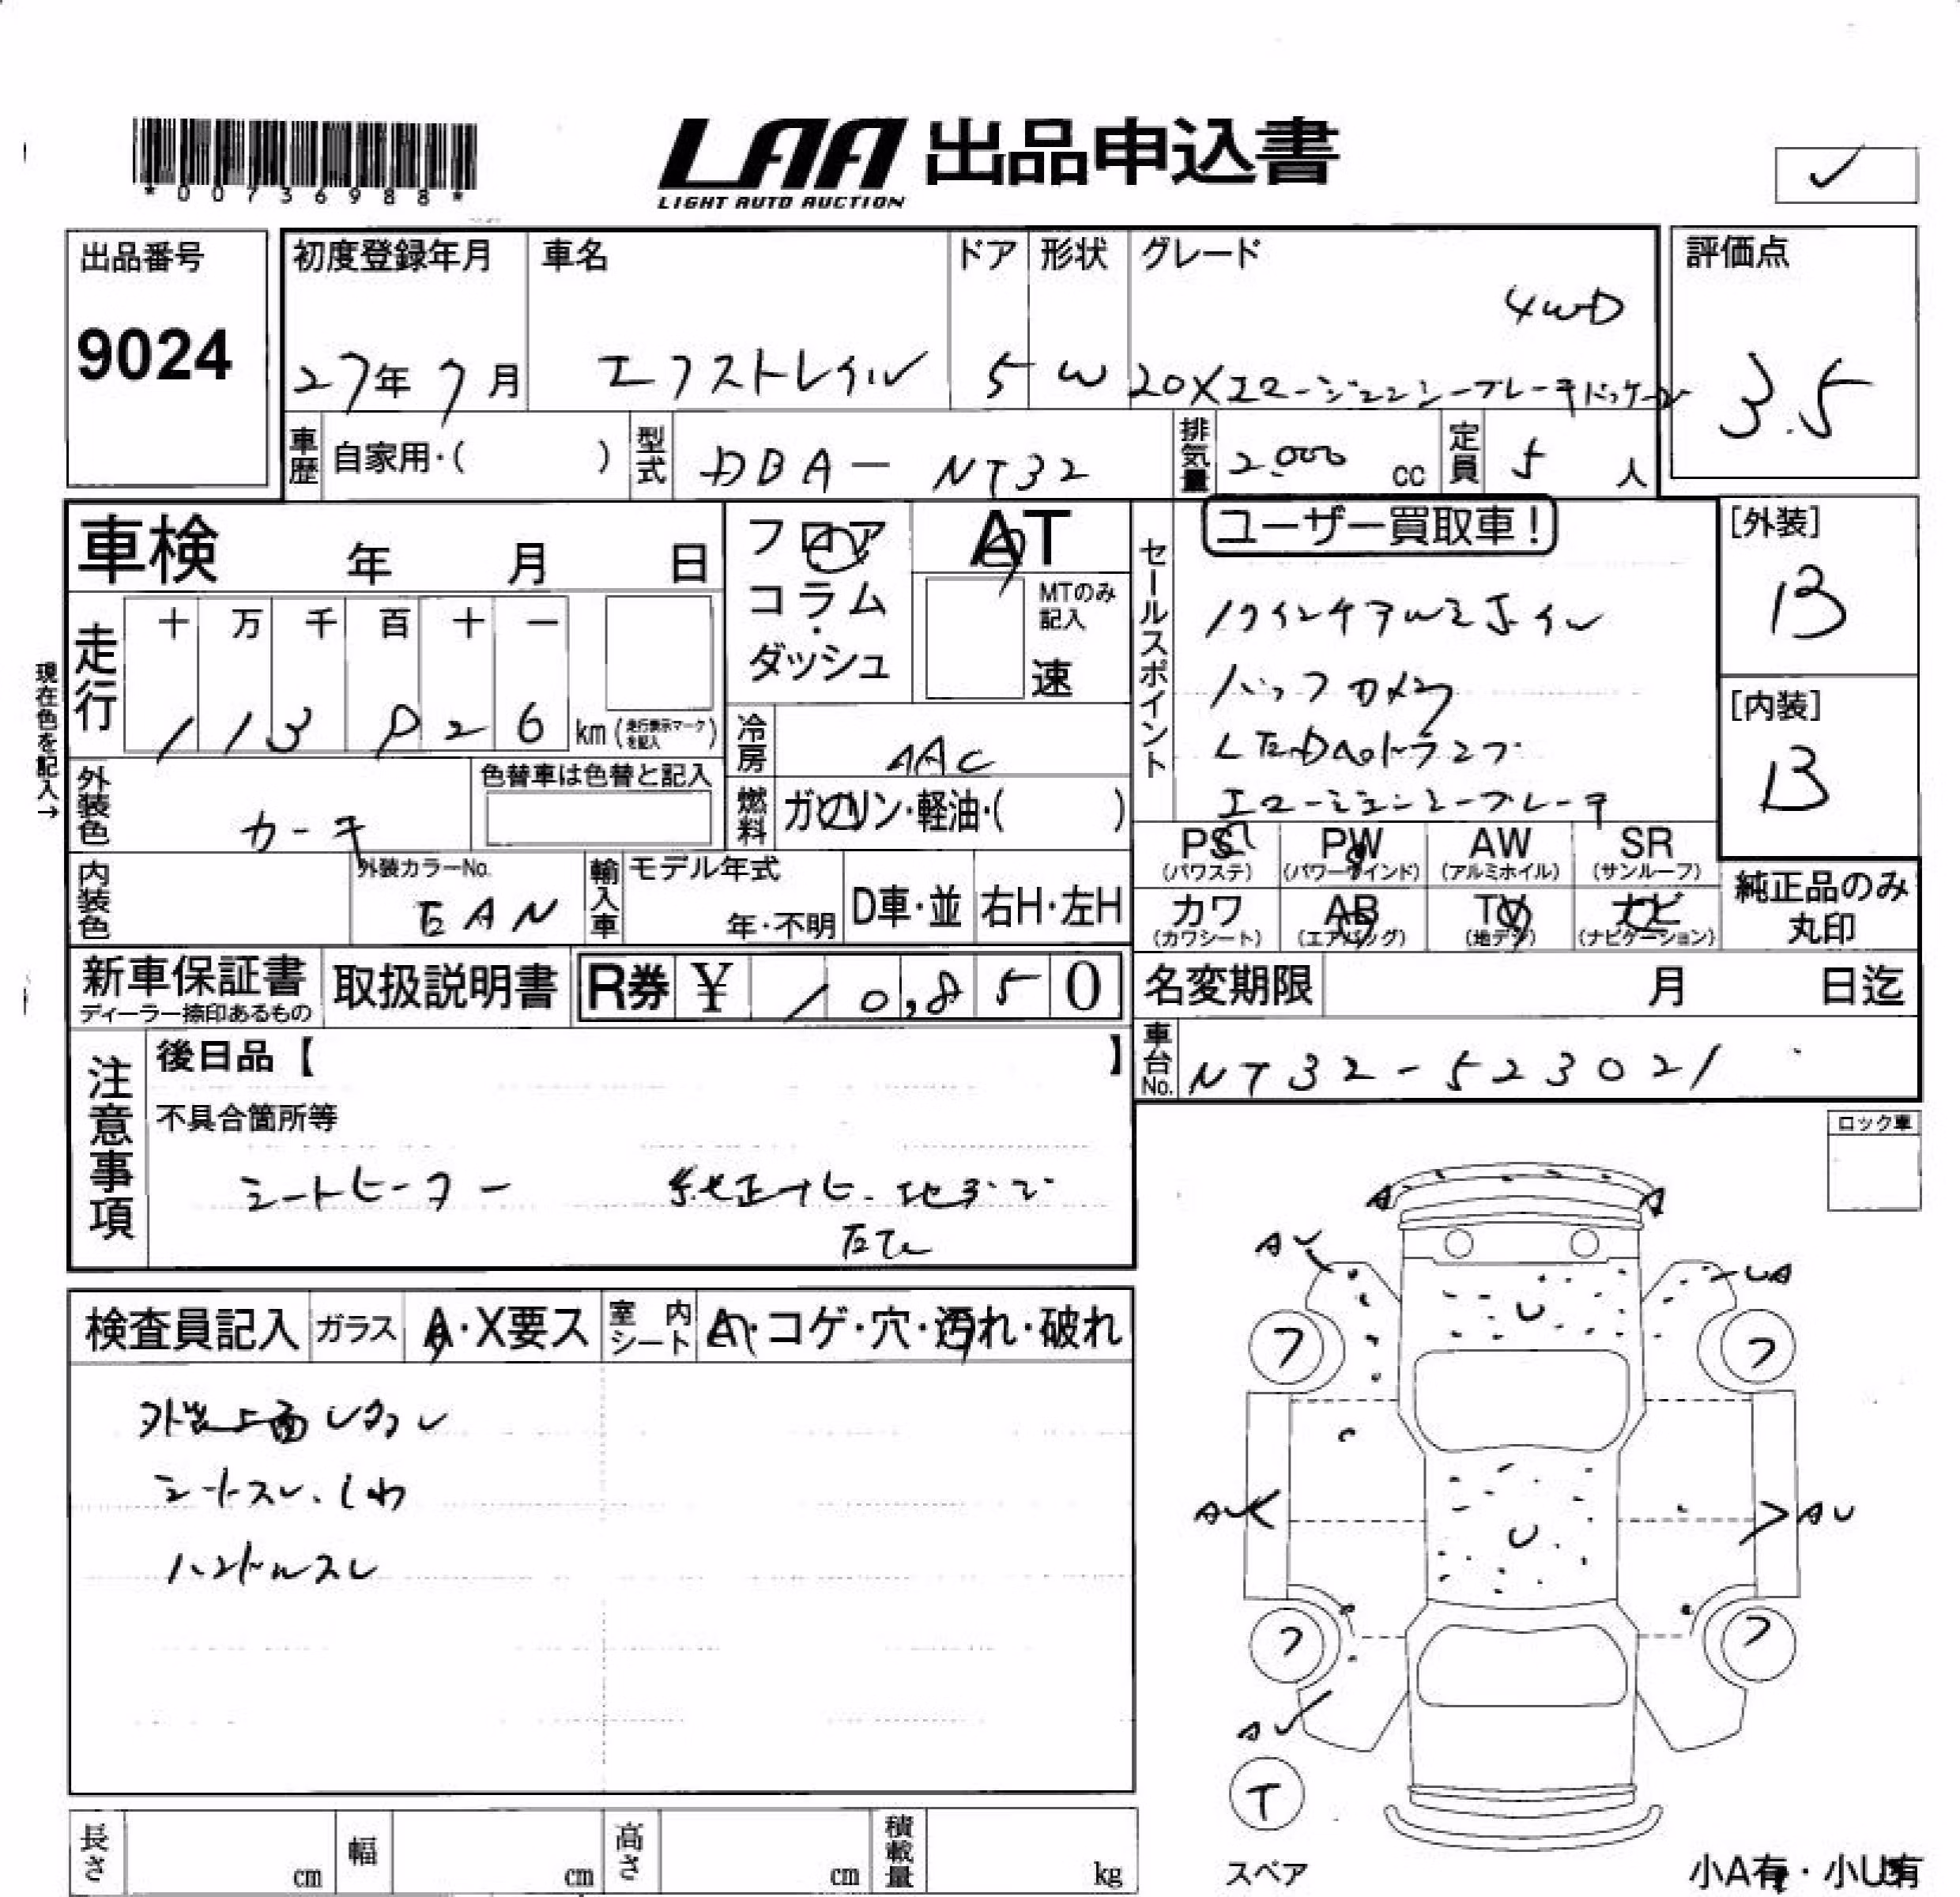 *00736988*
LAA 出品申込書
LIGHT AUTO AUCTION
✓
出品番号
9024
初度登録年月
27年7月
車名
エクストレイル
ドア
5
形状
W
グレード
4WD
20Xエマージェンシーブレーキパッケージ
評価点
3.5
車歴
自家用・( )
型式
DBA-NT32
排気量
2,000 cc
定員
5人
車検 年 月 日
フロア
コラム
・
ダッシュ
AT
MTのみ
記入
速
セールスポイント
ユーザー買取車!
17インチアルミホイル
バックカメラ
LEDヘッドランプ
エマージェンシーブレーキ
[外装]
B
[内装]
B
現在色を記入→
走行
十 万 千 百 十 一
113026 km(走行表示マークを記入)
冷房
AAC
燃料
ガソリン・軽油・( )
外装色
カーキ
色替車は色替と記入
内装色
外装カラーNo.
EAN
輸入車
モデル年式
年・不明
D車・並
右H・左H
PS
(パワステ)
PW
(パワーウインド)
AW
(アルミホイル)
SR
(サンルーフ)
カワ
(カワシート)
AB
(エアバッグ)
TV
(地デジ)
ナビ
(ナビゲーション)
純正品のみ
丸印
新車保証書
ディーラー捺印あるもの
取扱説明書
R券 ¥ 10,850
名変期限 月 日迄
車台No.
NT32-523021
注意事項
後日品【 】
不具合箇所等
シートヒーター 純正ナビ・地デジ
ETC
ロック車
検査員記入
ガラス
A・X要ス
室内シート
A・コゲ・穴・汚れ・破れ
外装上面
シートスレ、しわ
ハンドルスレ
A A
AU UA
U
フ フ
AU AU
U
フ フ
AU
T
スペア
小A有・小U有
長さ cm
幅 cm
高さ cm
積載量 kg